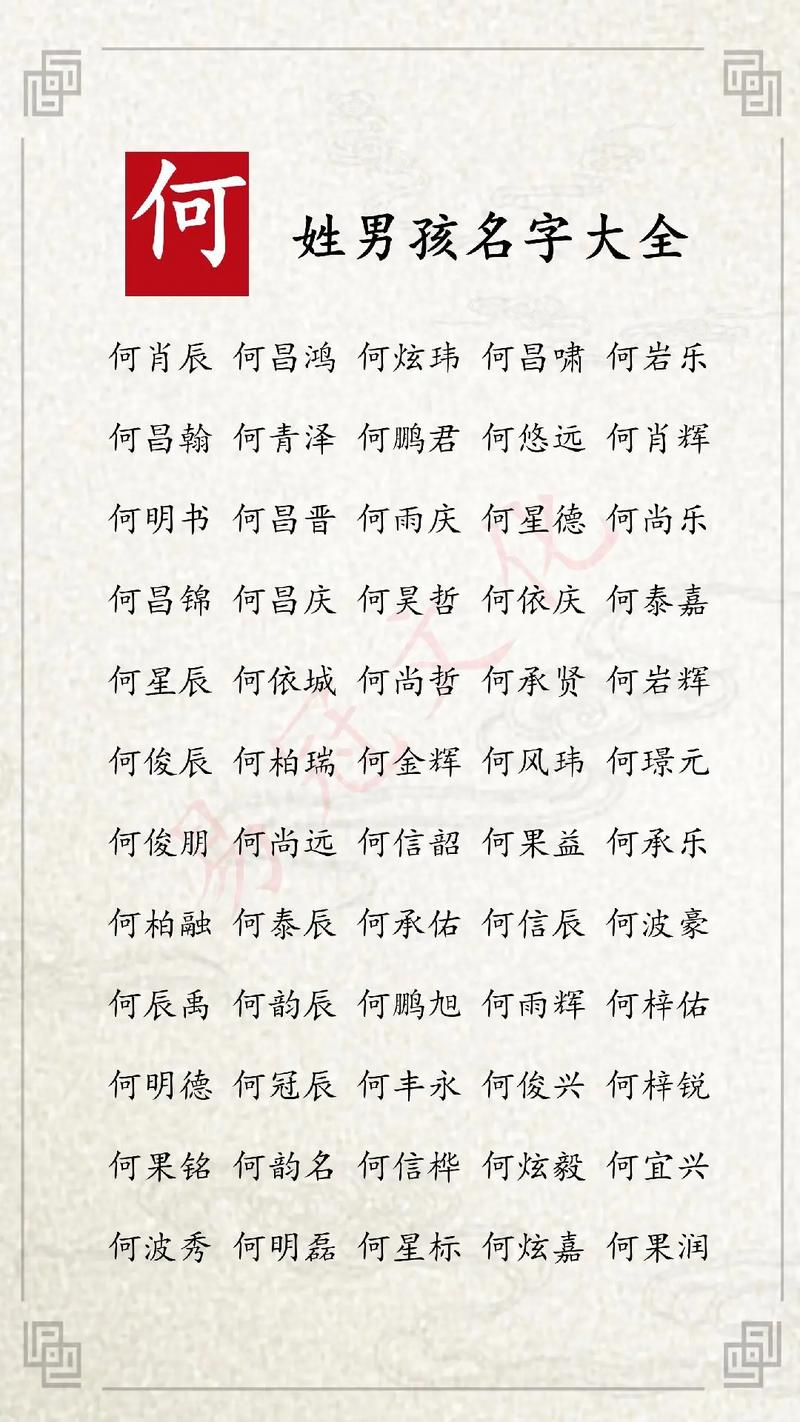 何 姓男孩名字大全
何肖辰 何昌鸿 何炫玮 何昌啸 何岩乐
何昌翰 何青泽 何鹏君 何悠远 何肖辉
何明书 何昌晋 何雨庆 何星德 何尚乐
何昌锦 何昌庆 何昊哲 何依庆 何泰嘉
何星辰 何依城 何尚哲 何承贤 何岩辉
何俊辰 何柏瑞 何金辉 何风玮 何璟元
何俊朋 何尚远 何信韶 何果益 何承乐
何柏融 何泰辰 何承佑 何信辰 何波豪
何辰禹 何韵辰 何鹏旭 何雨辉 何梓佑
何明德 何冠辰 何丰永 何俊兴 何梓锐
何果铭 何韵名 何信桦 何炫毅 何宜兴
何波秀 何明磊 何星标 何炫嘉 何果润
易冠文化